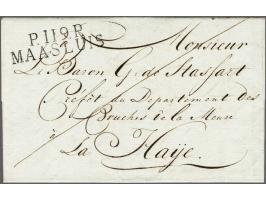 P.119.P.
MAASLUIS
Monsieur
Le Baron G. de Stassart
Préfet du Departement des
Bouches de la Meuse
à
La Haÿe.